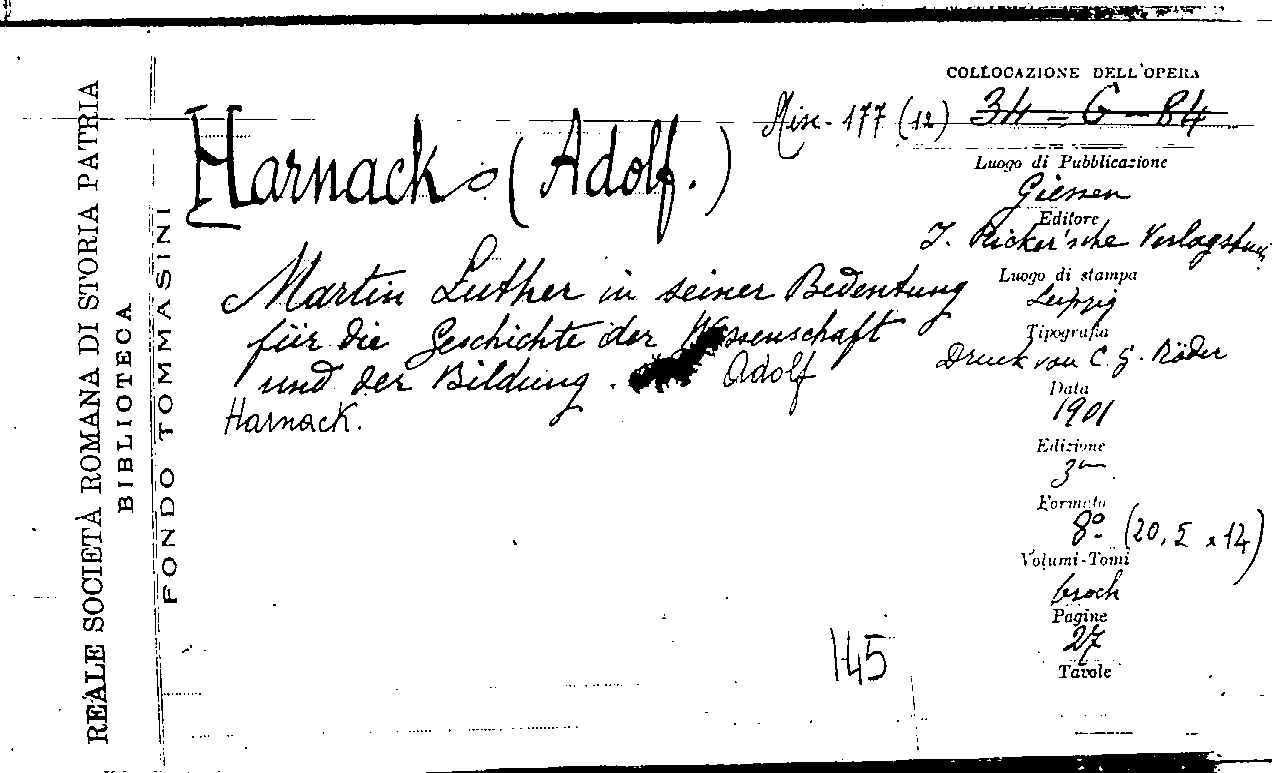 REALE SOCIETÀ ROMANA DI STORIA PATRIA
BIBLIOTECA
FONDO TOMMASINI
COLLOCAZIONE DELL'OPERA
Misc. 177 (12) 34 = 6 - 84
Harnack (Adolf.)
Martin Luther in seiner Bedeutung
für die Geschichte der Wissenschaft
und der Bildung. Adolf
Harnack.
Luogo di Pubblicazione
Giessen
Editore
J. Ricker'sche
Luogo di stampa
Leipzig
Tipografia
Druck von C. G. Röder
Data
1901
Edizione
3ª
Formato
8º (20,5 x 14)
Volumi-Tomi
broch
Pagine
27
Tavole
145